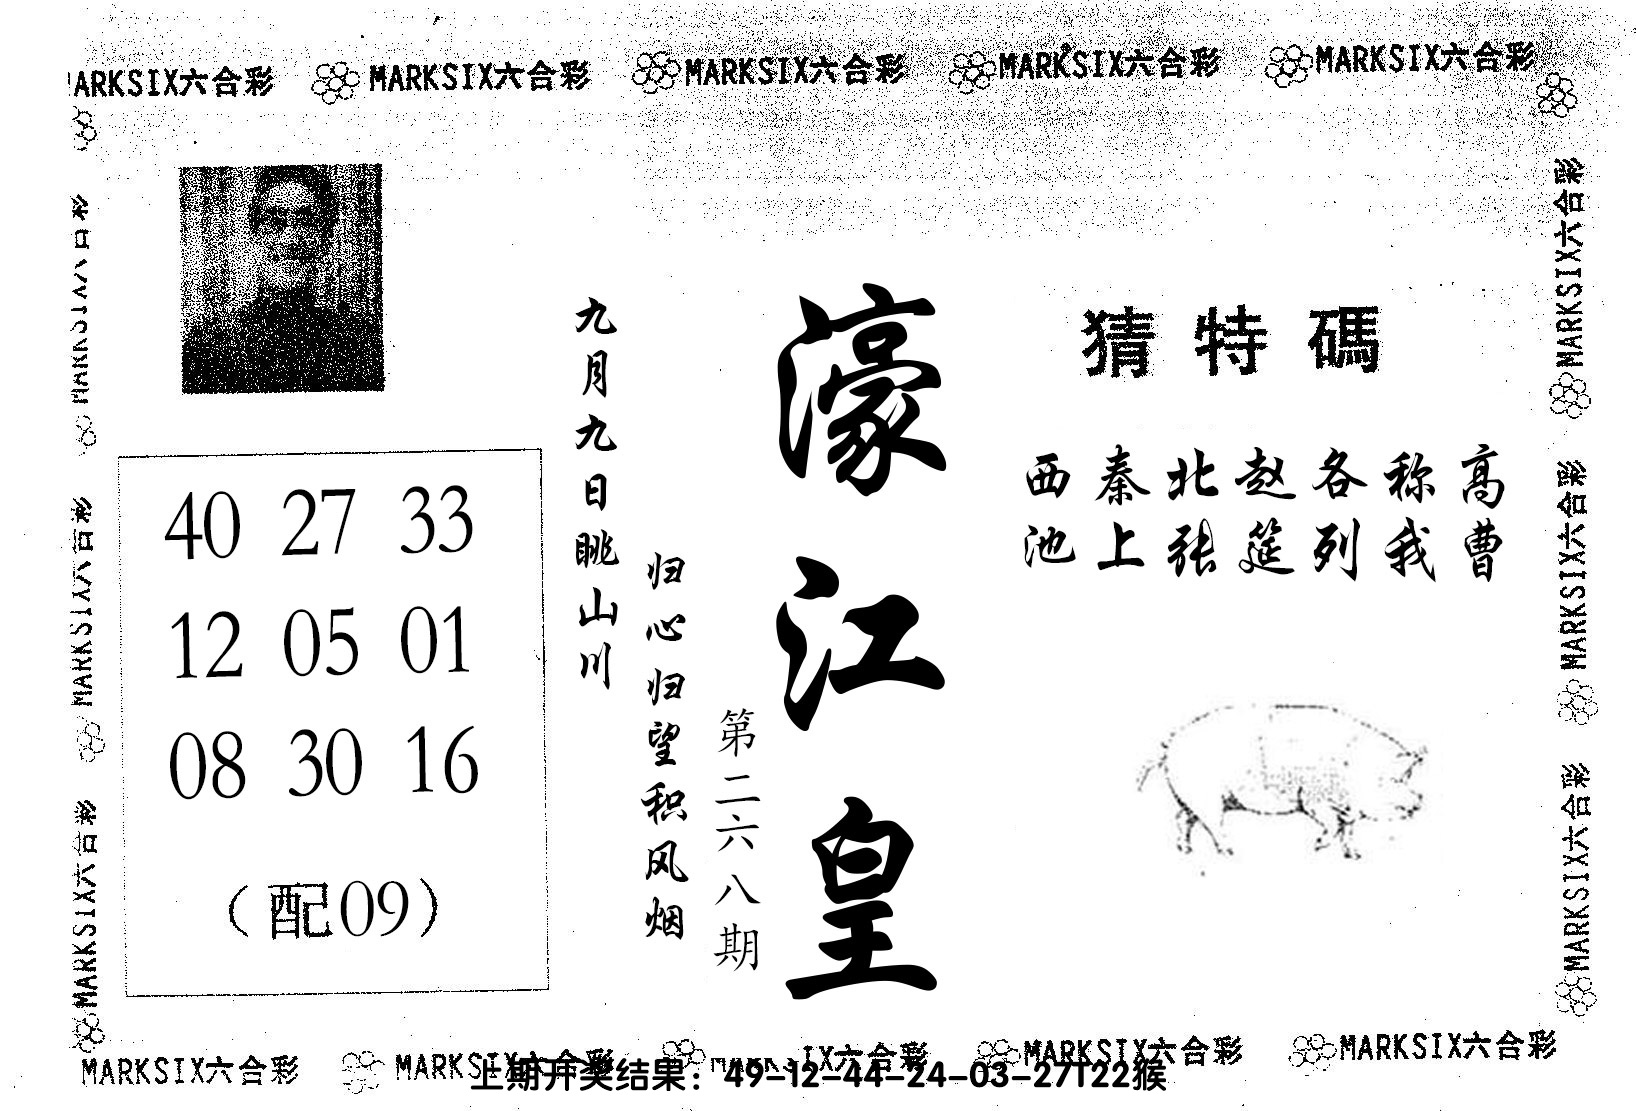 MARKSIX六合彩 MARKSIX六合彩 MARKSIX六合彩 MARKSIX六合彩 MARKSIX六合彩
猜特碼
西秦北赵各称高
池上张筵列我曹
濠江皇
第二六八期
九月九日眺山川
归心归望积风烟
40 27 33
12 05 01
08 30 16
(配09)
MARKSIX六合彩
MARKSIX六合彩
MARKSIX六合彩
MARKSIX六合彩
MARKSIX六合彩
MARKSIX六合彩
MARKSIX六合彩 MARKSIX六合彩 MARKSIX六合彩 MARKSIX六合彩 MARKSIX六合彩
上期开奖结果：49-12-44-24-03-27T22猴